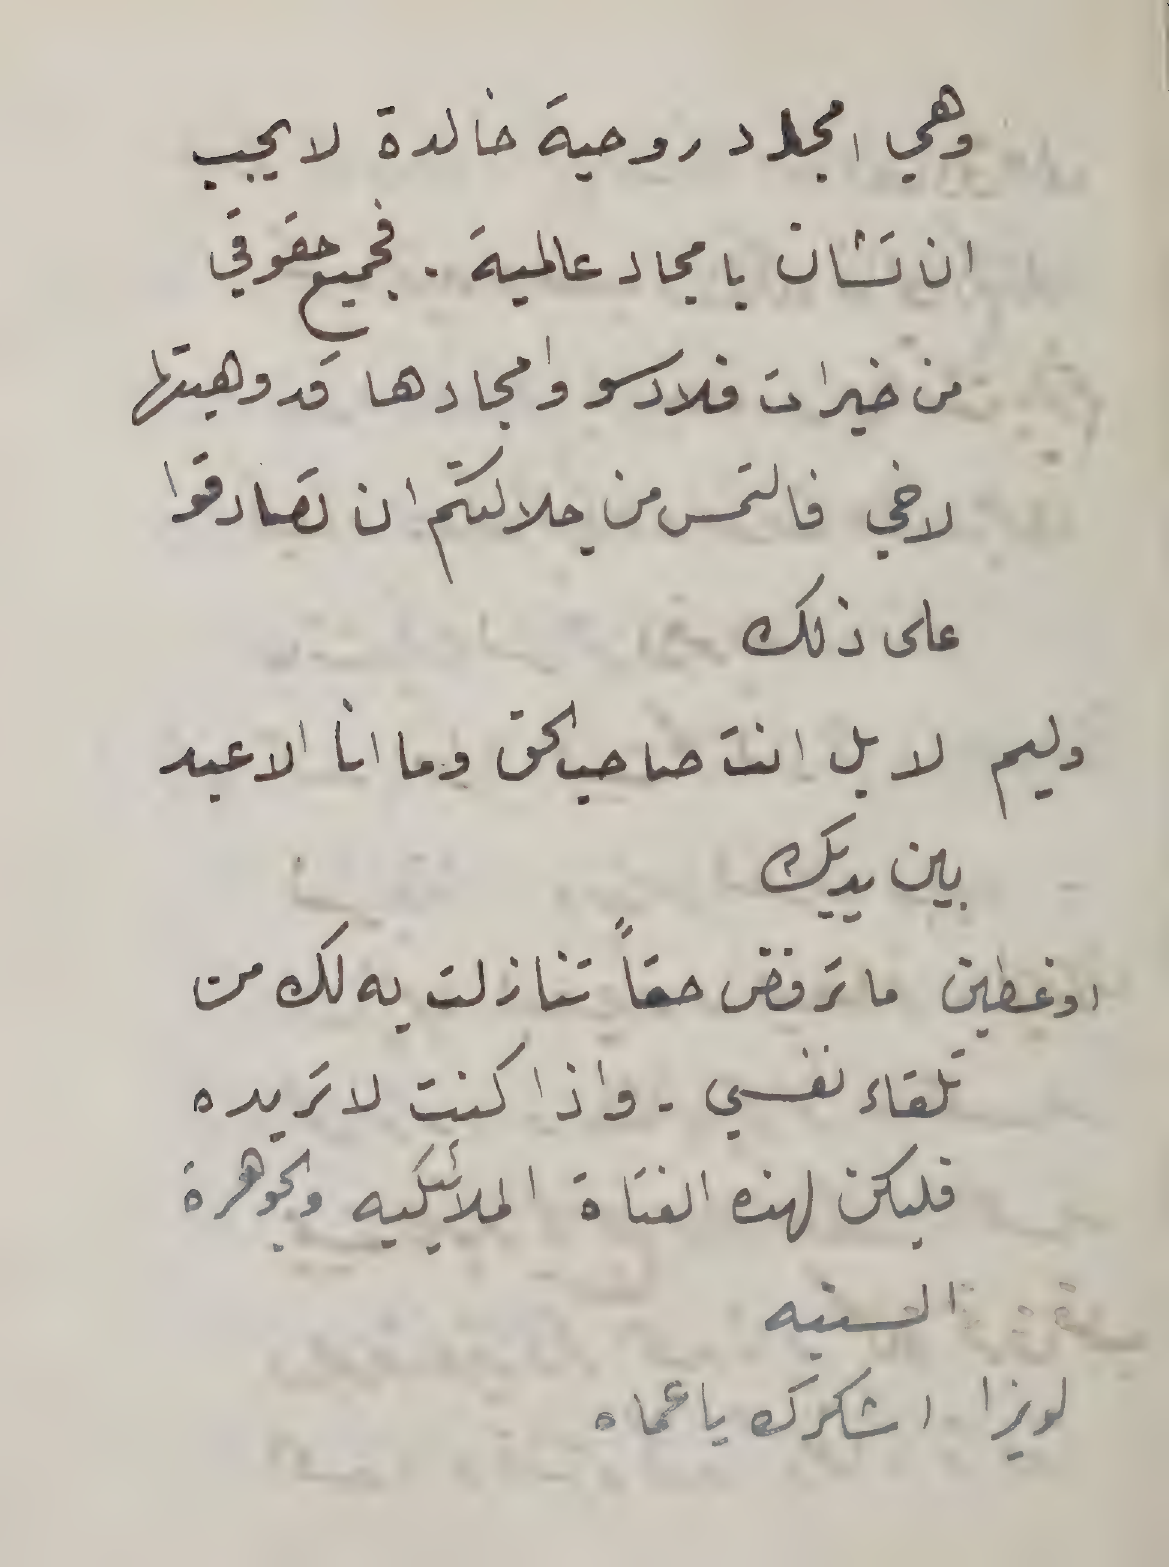 وهي امجاد روحية خالدة لا يجب
ان تشان بامجاد عالمية . فجميع حقوقي
من خيرات فلادسو وامجادها قد وهبتها
لاخي فالتمس من جلالتكم ان تصادقوا
على ذلك
وليم لا بل انت صاحب الحق وما انا الا عبد
بين يديك
اوغطين ما ترفض حقاً تنازلت به لك من
تلقاء نفسي . واذا كنت لا تريده
فليكن لهذه الفتاة الملائكيه والجوهرة
السنيه
لويزا اشكرك يا عماه